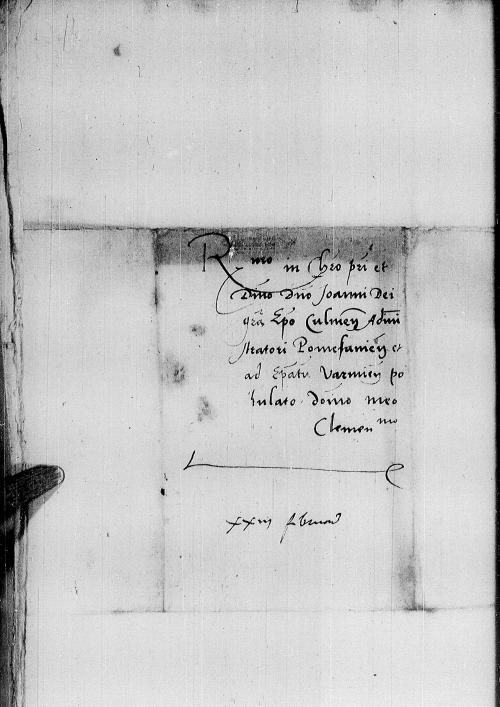 Rmo in Chro pri et
Dmo Dno Joanni Dei
gra Epo Culmen Admi
stratori Pomesanien et
ad Epatu Varmien po
stulato Domo meo
Clemenmo
xxiii februarii